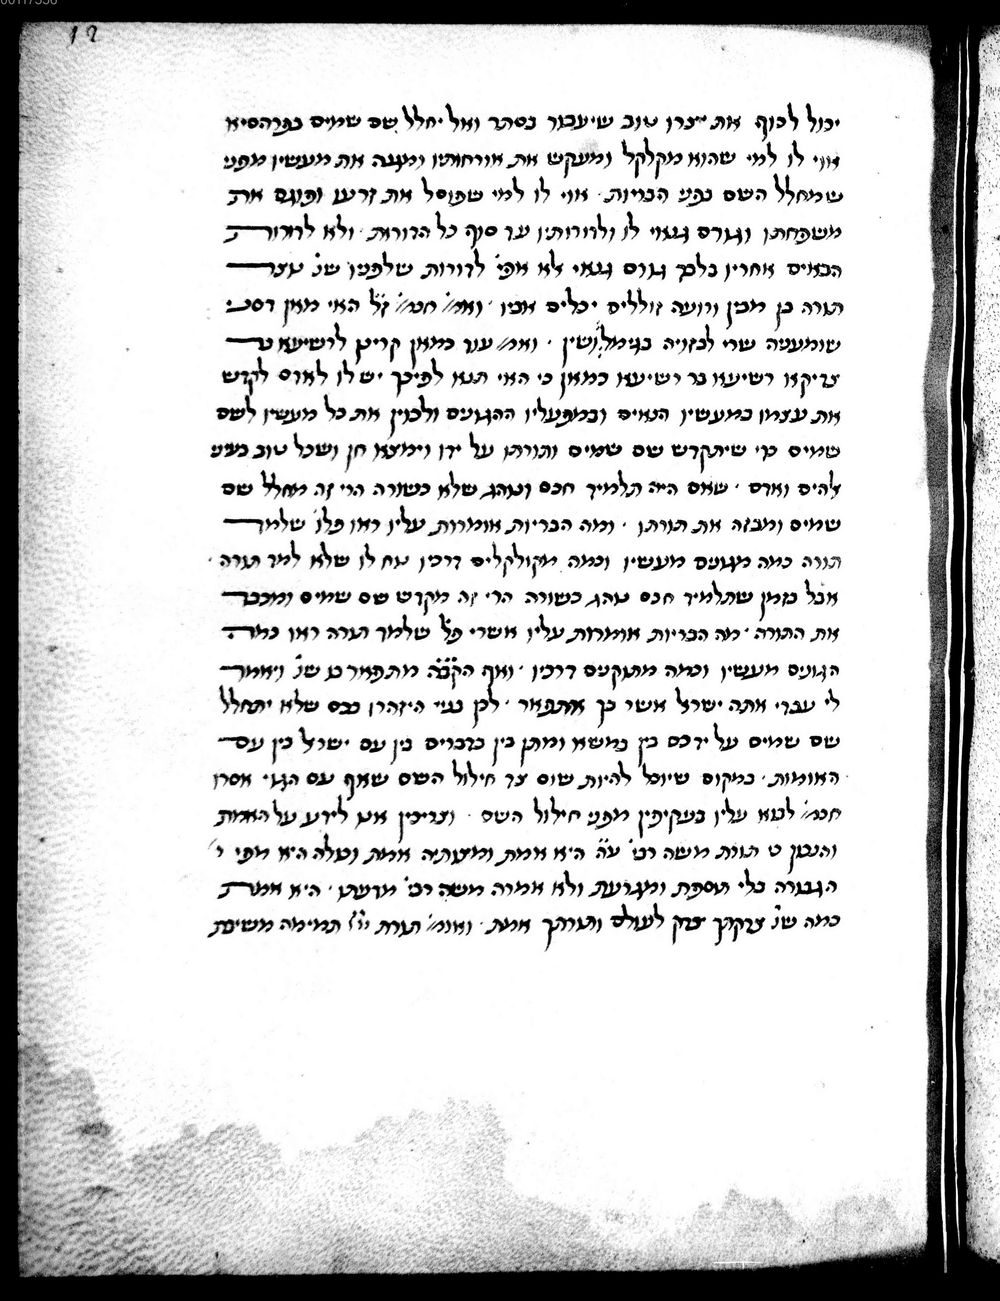 12
יכול לכוף את יצרו טוב שיעבור בסתר ואל יחלל שם שמים בפרהסיא
אוי לו למי שהוא מקלקל ומעקש את אורחותיו ומגנה את מעשיו מפני
שמחלל השם בפני הבריות ׳ אוי לו למי שפוסל את זרעו ופוגם את
משפחתו וגורם גנאי לו ולדורותיו עד סוף כל הדורות ׳ ולא לדורות
הבאים אחריו בלבד גורם גנאי אלא אפי׳ לדורות שלפניו שנ׳ נוצר
תורה בן מבין ורועה זוללים יכלים אביו ׳ ואמ׳ חכמ׳ ז״ל האי מאן דסני
שומעניה שרי לבזוייה בגימל ושין ׳ ואמ׳ עוד כמאן קרינן לרשיעא בר
צדיקא רשיעא בר רשיעא כמאן כי האי תנא לפיכך יש לו לאדם לקדש
את עצמו במעשיו הנאים ובמפעליו ההגונים ולכוין את כל מעשיו לשם
שמים כדי שיתקדש שם שמים ותורתו על ידו וימצא חן ושכל טוב בעיני
אלהים ואדם ׳ שאם היה תלמיד חכם ונוהג שלא כשורה הרי זה מחלל שם
שמים ומבזה את תורתו ׳ ומה הבריות אומרות עליו ראו פלו׳ שלמד
תורה כמה מגונים מעשיו וכמה מקולקלים דרכיו נוח לו שלא למד תורה ׳
אבל בזמן שתלמיד חכם נוהג כשורה הרי זה מקדש שם שמים ומכבד
את התורה ׳ מה הבריות אומרות עליו אשרי פל׳ שלמד תורה ראו כמה
הגונים מעשיו וכמה מתוקנים דרכיו ׳ ואף הקב״ה מתפאר בו שנ׳ ויאמר
לי עבדי אתה ישראל אשר בך אתפאר ׳ לכן בניי היזהרו בכם שלא יתחלל
שם שמים על ידכם בין במשא ומתן בין בדברים בין עם ישראל בין עם
האומות ׳ במקום שיוכל להיות שום צד חילול השם שאף עם הגוי אסרו
חכמ׳ לבוא עליו בעקיפין מפני חילול השם ׳ וצריכין אנו לידע על האמת
והנכון כי תורת משה רבי׳ ע״ה היא אמת ומצותיה אמת וכולה היא מפי
הגבורה בלי תוספת ומגרעת ולא אמרה משה רבי׳ מדעתו ׳ היא אמת
כמה שנ׳ צדקתך צדק לעולם ותורתך אמת ׳ ואומ׳ תורת יי׳ תמימה משיבת